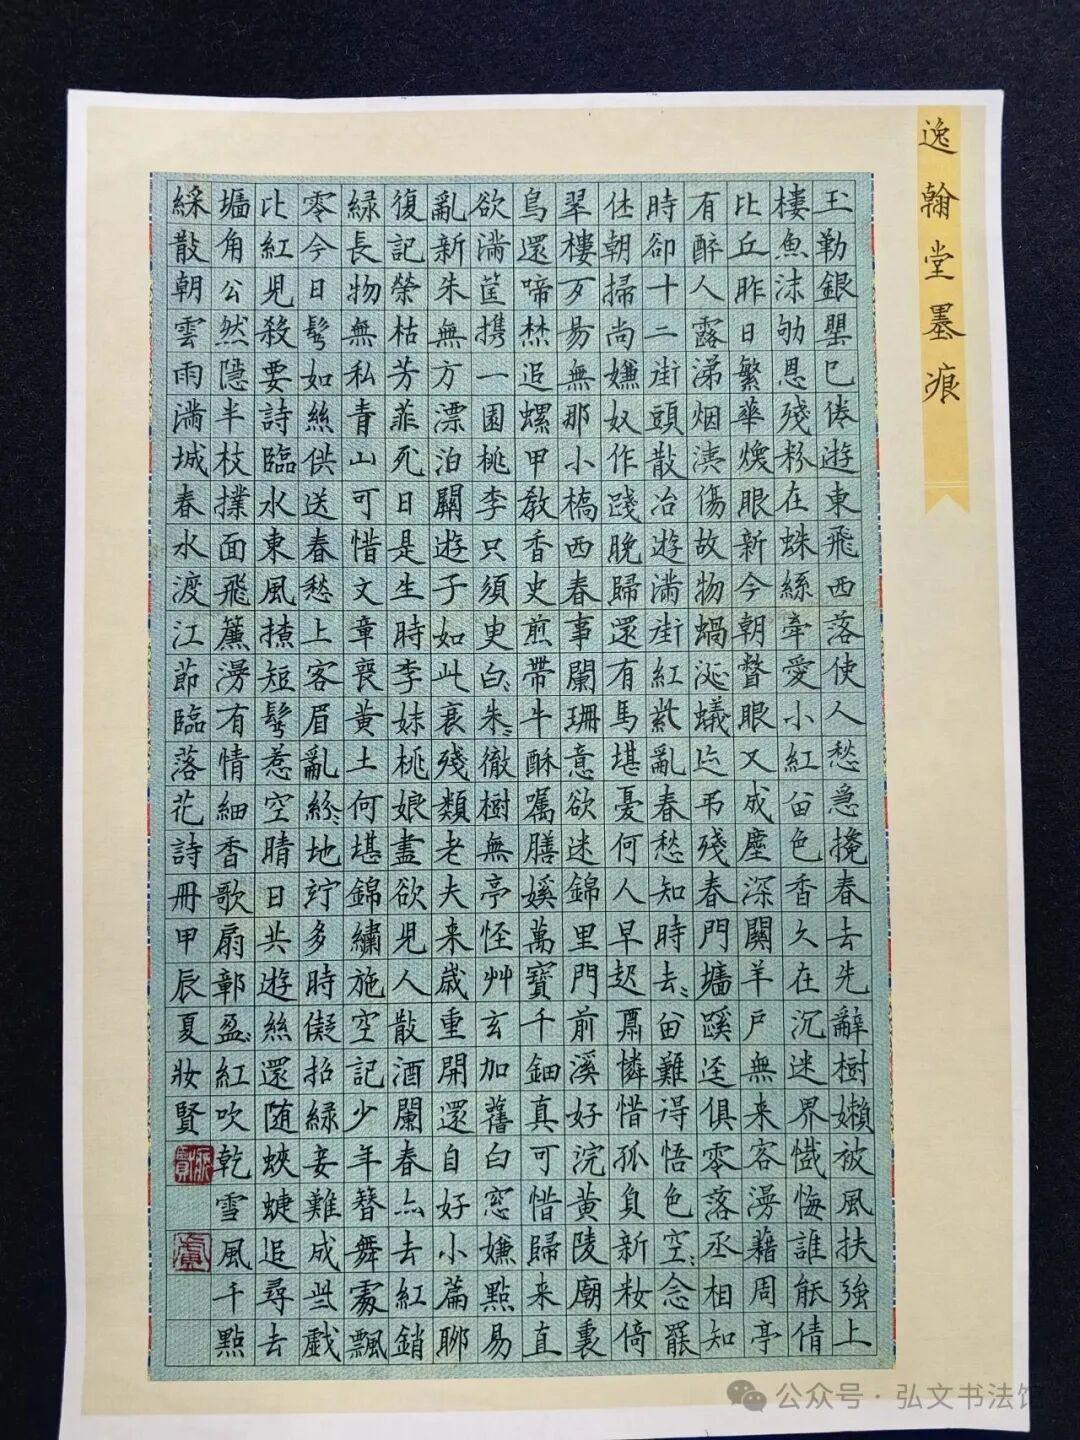 逸翰堂墨痕
玉勒銀罌已倦遊東飛西落使人愁急攙春去先辭樹嬾被風扶強上
樓魚沫劬恩殘粉在蛛絲牽愛小紅留色香久在沉迷界懺悔誰能倩
比丘昨日繁華煥眼新今朝瞥眼又成塵深關羊戶無来客漫藉周亭
有醉人露涕烟洟傷故物蝸涎蟻迹弔殘春門墻蹊迳俱零落丞相知
時卻十二街頭散冶遊滿街紅紫亂春愁知時去〻留難得悟色空〻念罷
休朝掃尚嫌奴作踐晚歸還有馬堪憂何人早起肅憐惜孤負新妝倚
翠樓歹易無那小橋西春事闌珊意欲迷錦里門前溪好浣黃陵廟裏
鳥還啼焚追螺甲教香史煎帶牛酥囑膳媛萬寶千鈿真可惜歸来直
欲滿筐攜一園桃李只須臾白〻朱〻徹樹無亭怪艸玄加舊白窓嫌點易
亂新朱無方漂泊關遊子如此衰殘類老夫来歲重開還自好小篇聊
復記榮枯芳菲死日是生時李妹桃娘盡欲兒人散酒闌春亦去紅銷
緑長物無私青山可惜文章喪黃土何堪錦繡施空記少年簪舞處飄
零今日鬂如絲供送春愁上客眉亂紛〻地竚多時儗招緑妾難成些戲
比紅兒殺要詩臨水東風撩短鬂惹空晴日共遊絲還随蛺蜨追尋去
墻角公然隱半枝撲面飛簾漫有情細香歌扇鄣盈〻紅吹乾雪風千點
綵散朝雲雨滿城春水渡江莭臨落花詩冊甲辰夏妝賢
公众号·弘文书法馆